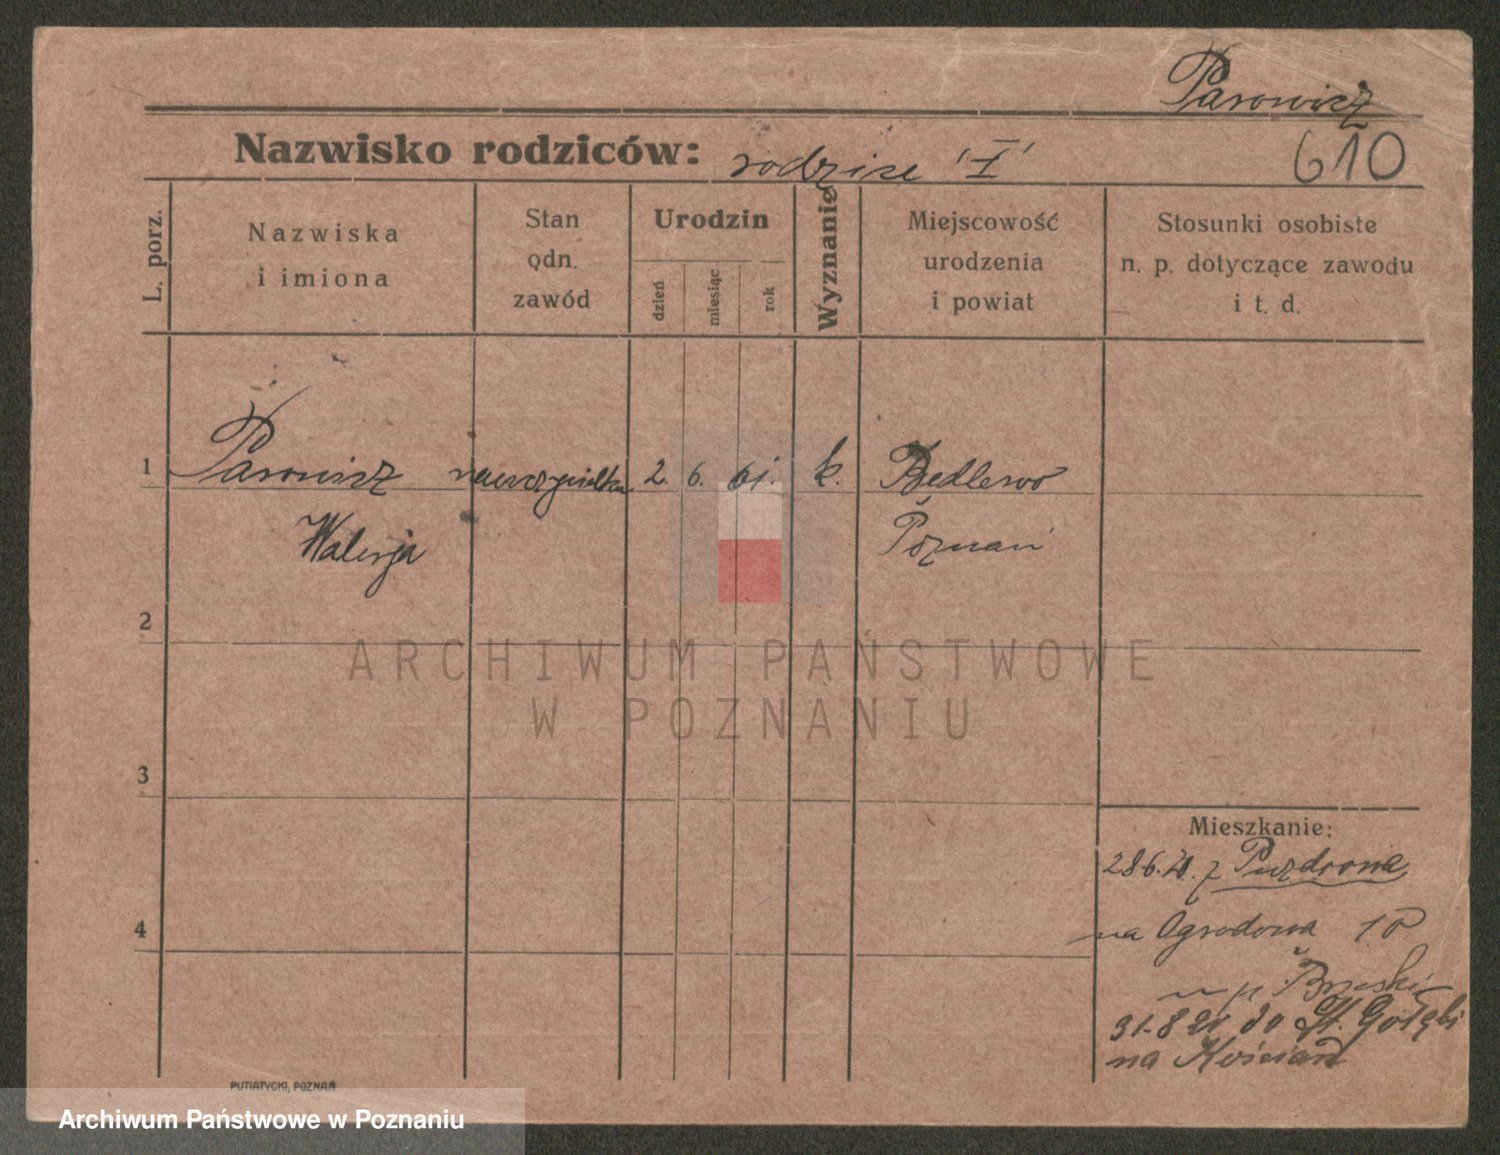 Parowicz
Nazwisko rodziców: rodzice 'I'
610
L. porz.
Nazwiska
i imiona
Stan
odn.
zawód
Urodzin
dzień
miesiąc
rok
Wyznanie
Miejscowość
urodzenia
i powiat
Stosunki osobiste
n. p. dotyczące zawodu
i t. d.
1 Parowicz nauczycielka 2. 6. 61. k. Będlewo
Walerja Poznań
2
ARCHIWUM PAŃSTWOWE
W POZNANIU
3
Mieszkanie:
z
4
na Ogrodowa 10
p. Brzeski
31-8 do St. Gołębi
na
PUTIATYCKI, POZNAŃ
Archiwum Państwowe w Poznaniu